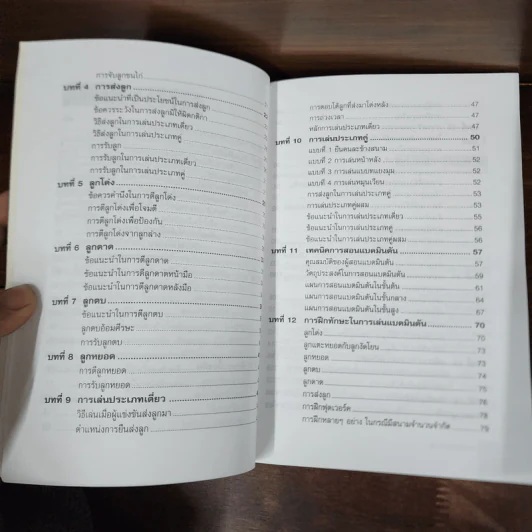 การรับลูกชนไก่
บทที่ 4 การส่งลูก
ข้อแนะนำที่เป็นประโยชน์ในการส่งลูก
ข้อควรระวังในการส่งลูกมิให้ผิดกติกา
วิธีส่งลูกในการเล่นประเภทเดี่ยว
วิธีส่งลูกในการเล่นประเภทคู่
การรับลูก
การรับลูกในการเล่นประเภทเดี่ยว
การรับลูกในการเล่นประเภทคู่
บทที่ 5 ลูกโด่ง
ข้อควรคำนึงในการตีลูกโด่ง
การตีลูกโด่งเพื่อโจมตี
การตีลูกโด่งเพื่อป้องกัน
การตีลูกโด่งจากลูกล่าง
บทที่ 6 ลูกดาด
ข้อแนะนำในการตีลูกดาด
ข้อแนะนำในการตีลูกดาดหน้ามือ
ข้อแนะนำในการตีลูกดาดหลังมือ
บทที่ 7 ลูกตบ
ข้อแนะนำในการตีลูกตบ
ลูกตบอ้อมศีรษะ
การรับลูกตบ
บทที่ 8 ลูกหยอด
การตีลูกหยอด
การรับลูกหยอด
บทที่ 9 การเล่นประเภทเดี่ยว
วิธีเล่นเมื่อผู้แข่งขันส่งลูกมา
ตำแหน่งการยืนส่งลูก
การตอบโต้ลูกที่ส่งมาโด่งหลัง 47
การถ่วงเวลา 47
หลักการเล่นประเภทเดี่ยว 47
บทที่ 10 การเล่นประเภทคู่ 50
แบบที่ 1 ยืนคนละข้างสนาม 51
แบบที่ 2 การเล่นหน้าหลัง 52
แบบที่ 3 การเล่นแบบทแยงมุม 52
แบบที่ 4 การเล่นหมุนเวียน 52
การส่งลูกในการเล่นประเภทคู่ 52
การเล่นประเภทคู่ผสม 53
ข้อแนะนำในการเล่นประเภทเดี่ยว 55
ข้อแนะนำในการเล่นประเภทคู่ 56
ข้อแนะนำในการเล่นประเภทคู่ผสม 56
บทที่ 11 เทคนิคการสอนแบดมินตัน 57
คุณสมบัติของผู้สอนแบดมินตัน 57
วัตถุประสงค์ในการสอนแบดมินตัน 59
แผนการสอนแบดมินตันในชั้นต้น 61
แผนการสอนแบดมินตันในชั้นกลาง 64
แผนการสอนแบดมินตันในชั้นสูง 67
บทที่ 12 การฝึกทักษะในการเล่นแบดมินตัน 70
ลูกโด่ง 70
ลูกแตะหยอดกับลูกงัดโยน 73
ลูกหยอด 73
ลูกตบ 74
ลูกดาด 74
การส่งลูก 76
การฝึกฟุตเวอร์ค 78
การฝึกหลายๆ อย่าง ในกรณีมีสนามจำนวนจำกัด 79